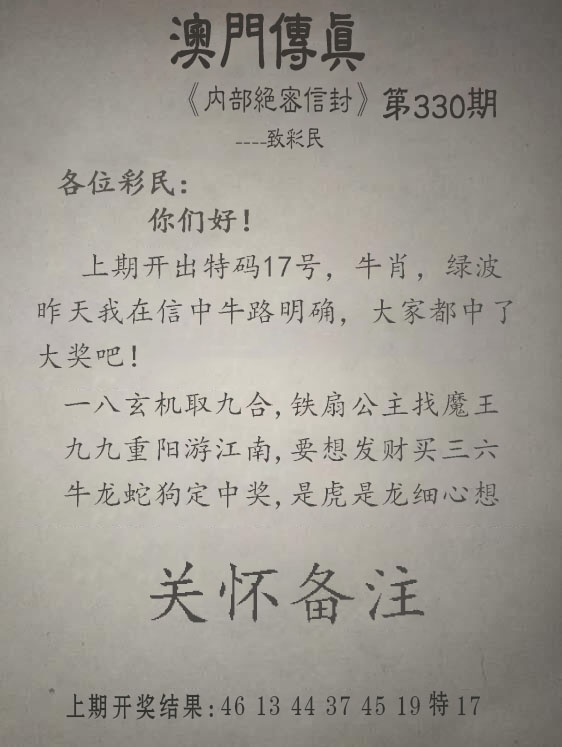 澳門傳眞
《内部絕密信封》第330期
----致彩民
各位彩民：
你们好！
上期开出特码17号，牛肖，绿波
昨天我在信中牛路明确，大家都中了
大奖吧！
一八玄机取九合,铁扇公主找魔王
九九重阳游江南,要想发财买三六
牛龙蛇狗定中奖,是虎是龙细心想
关怀备注
上期开奖结果:46 13 44 37 45 19 特 17